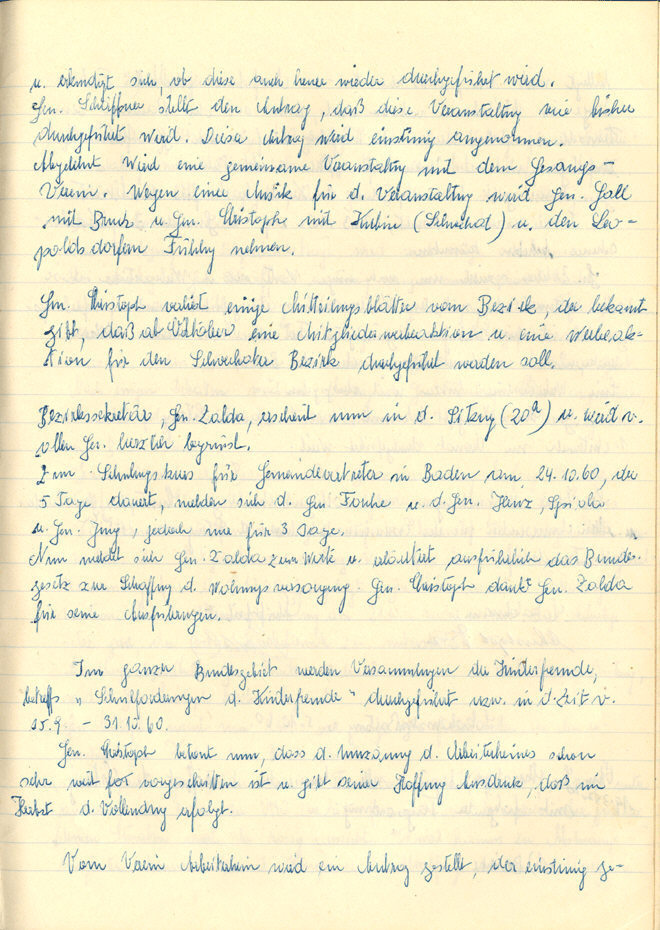 u. erkundigt sich, ob diese auch heuer wieder durchgeführt wird.
Gen. Schiffner stellt den Antrag, daß diese Veranstaltung wie bisher
durchgeführt wird. Dieser Antrag wird einstimmig angenommen.
Abgelehnt wird eine gemeinsame Veranstaltung mit dem Gesangs-
Verein. Wegen einer Musik für d. Veranstaltung wird Gen. Gall
mit Bruck u. Gen. Christoph mit (Schwechat) u. den Leo-
poldsdorfern Fühlung nehmen.
Gen. Christoph verliest einige Mitteilungsblätter vom Bezirk, der bekannt
gibt, daß ab Oktober eine Mitgliederwerbeaktion u. eine Werbeak-
tion für den Schwechater Bezirk durchgeführt werden soll.
Bezirkssekretär, Gen. Zalda, erscheint nun in d. Sitzung (20h) u. wird v.
allen Gen. herzlich begrüsst.
Zum Schulungskurs für Gemeindevertreter in Baden am 24.10.60, der
5 Tage dauert, melden sich d. Gen. u. d. Gen. Spisiha
u. Gen. Jung, jedoch nur für 3 Tage.
Nun meldet sich Gen. Zalda zum Worte u. erläutert ausführlich das Bundes-
gesetz zur Schaffung d. Wohnungsversorgung. Gen. Christoph dankt Gen. Zalda
für seine Ausführungen.
Im ganzen Bundesgebiet werden Versammlungen der Kinderfreunde,
betreffs „Schulforderungen d. Kinderfreunde" durchgeführt uzw. in d. Zeit v.
15.9. – 31.10.60.
Gen. Christoph betont nun, dass d. Umzäunung d. Arbeiterheimes schon
sehr weit fortgeschritten ist u. gibt seiner Hoffnung Ausdruck, daß im
Herbst d. Vollendung erfolgt.
Vom Verein Arbeiterheim wird ein Antrag gestellt, der einstimmig ge-